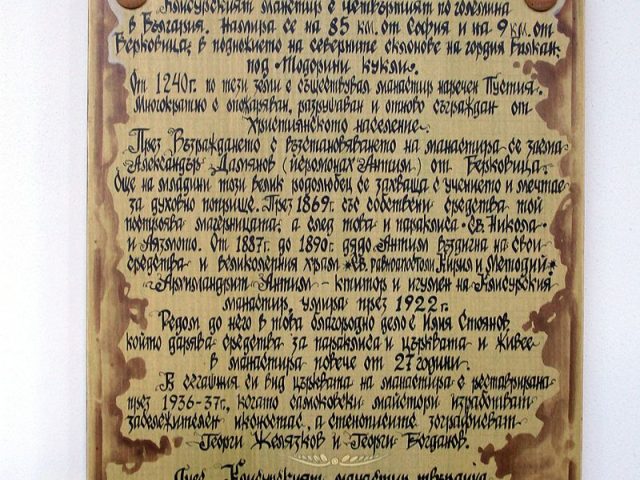 Клисурският манастир е четвъртият по големина
в България. Намира се на 85 км. от София и на 9 км. от
Берковица, в подножието на северните склонове на гордия Балкан,
под «Тодорини кукли».
От 1240г. по тези земи е съществувал манастир наречен Пустия.
Многократно е опожаряван, разрушаван и отново съграждан от
християнското население.
През Възраждането с възстановяването на манастира се заема
Александър Дамянов (иеромонах Антим) от Берковица.
Още на младини този велик родолюбец се захваща с учението и мечтае
за духовно поприще. През 1869г. със собствени средства той
построява магерницата, а след това и параклиса «Св. Никола»
и Аязмото. От 1887г. до 1890г. дядо Антим въздига на свои
средства и великолепния храм «Св. равноапостоли Кирил и Методий».
Архимандрит Антим - ктитор и игумен на Клисурския
манастир, умира през 1922г.
Редом до него в това благородно дело е Илия Стоянов,
който дарява средства за параклиса и църквата и живее
в манастира повече от 27 години.
В сегашния си вид църквата на манастира е реставрирана
през 1936-37г., когато самоковски майстори изработват
забележителен иконостас, а стенописите зографисват
Георги Желязков и Георги Богданов.
Днес Клисурският манастир